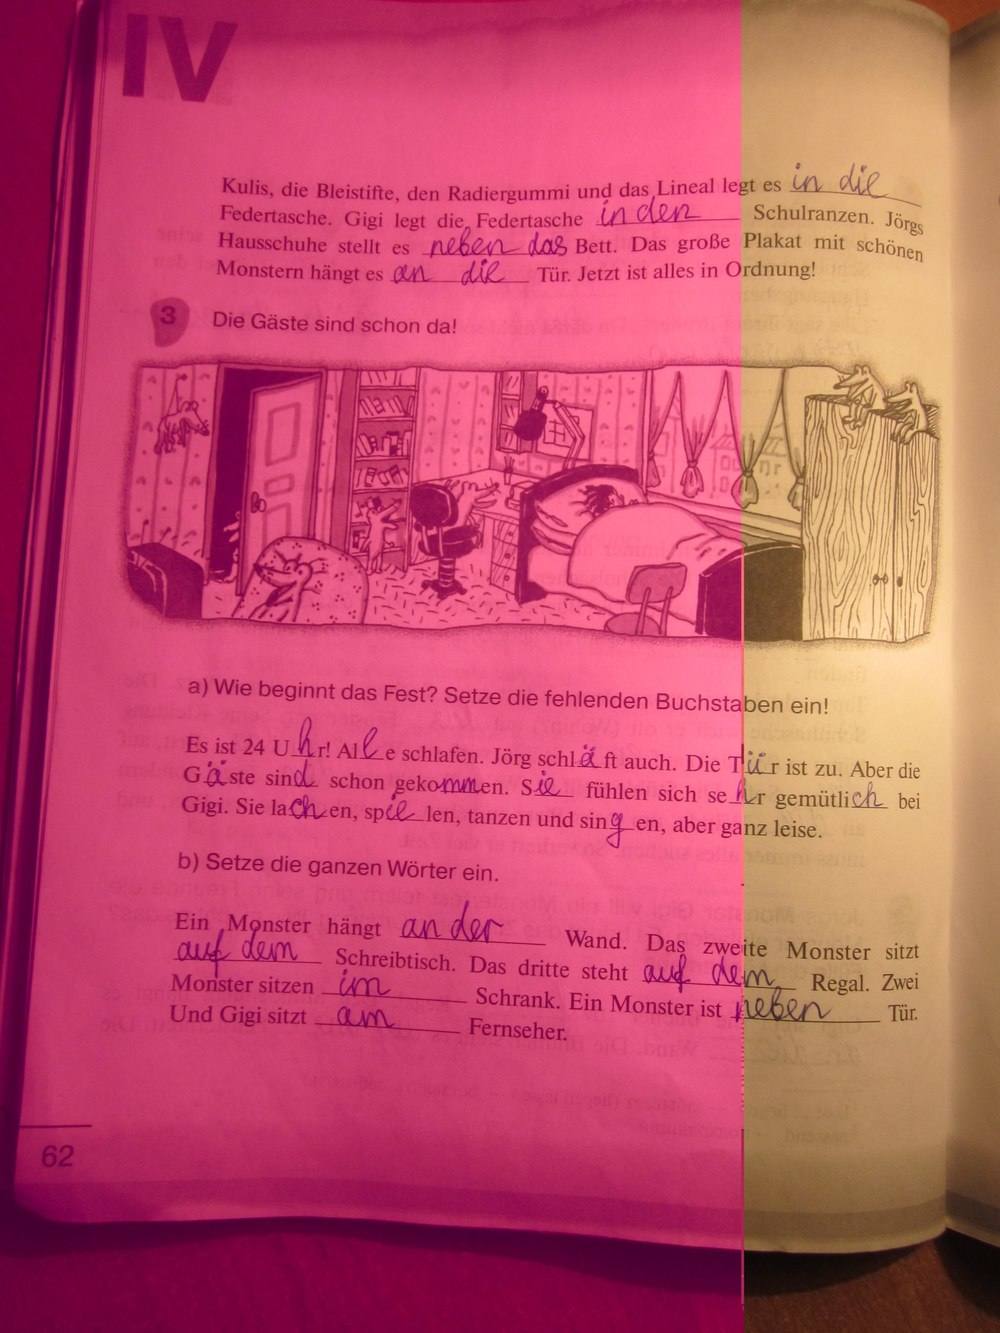 IV
Kulis, die Bleistifte, den Radiergummi und das Lineal legt es in die
Federtasche. Gigi legt die Federtasche in den Schulranzen. Jörgs
Hausschuhe stellt es neben das Bett. Das große Plakat mit schönen
Monstern hängt es an die Tür. Jetzt ist alles in Ordnung!
3 Die Gäste sind schon da!
a) Wie beginnt das Fest? Setze die fehlenden Buchstaben ein!
Es ist 24 Uhr! Alle schlafen. Jörg schläft auch. Die Tür ist zu. Aber die
Gäste sind schon gekommen. Sie fühlen sich sehr gemütlich bei
Gigi. Sie lachen, spielen, tanzen und singen, aber ganz leise.
b) Setze die ganzen Wörter ein.
Ein Monster hängt an der Wand. Das zweite Monster sitzt
auf dem Schreibtisch. Das dritte steht auf dem Regal. Zwei
Monster sitzen im Schrank. Ein Monster ist neben Tür.
Und Gigi sitzt am Fernseher.
62